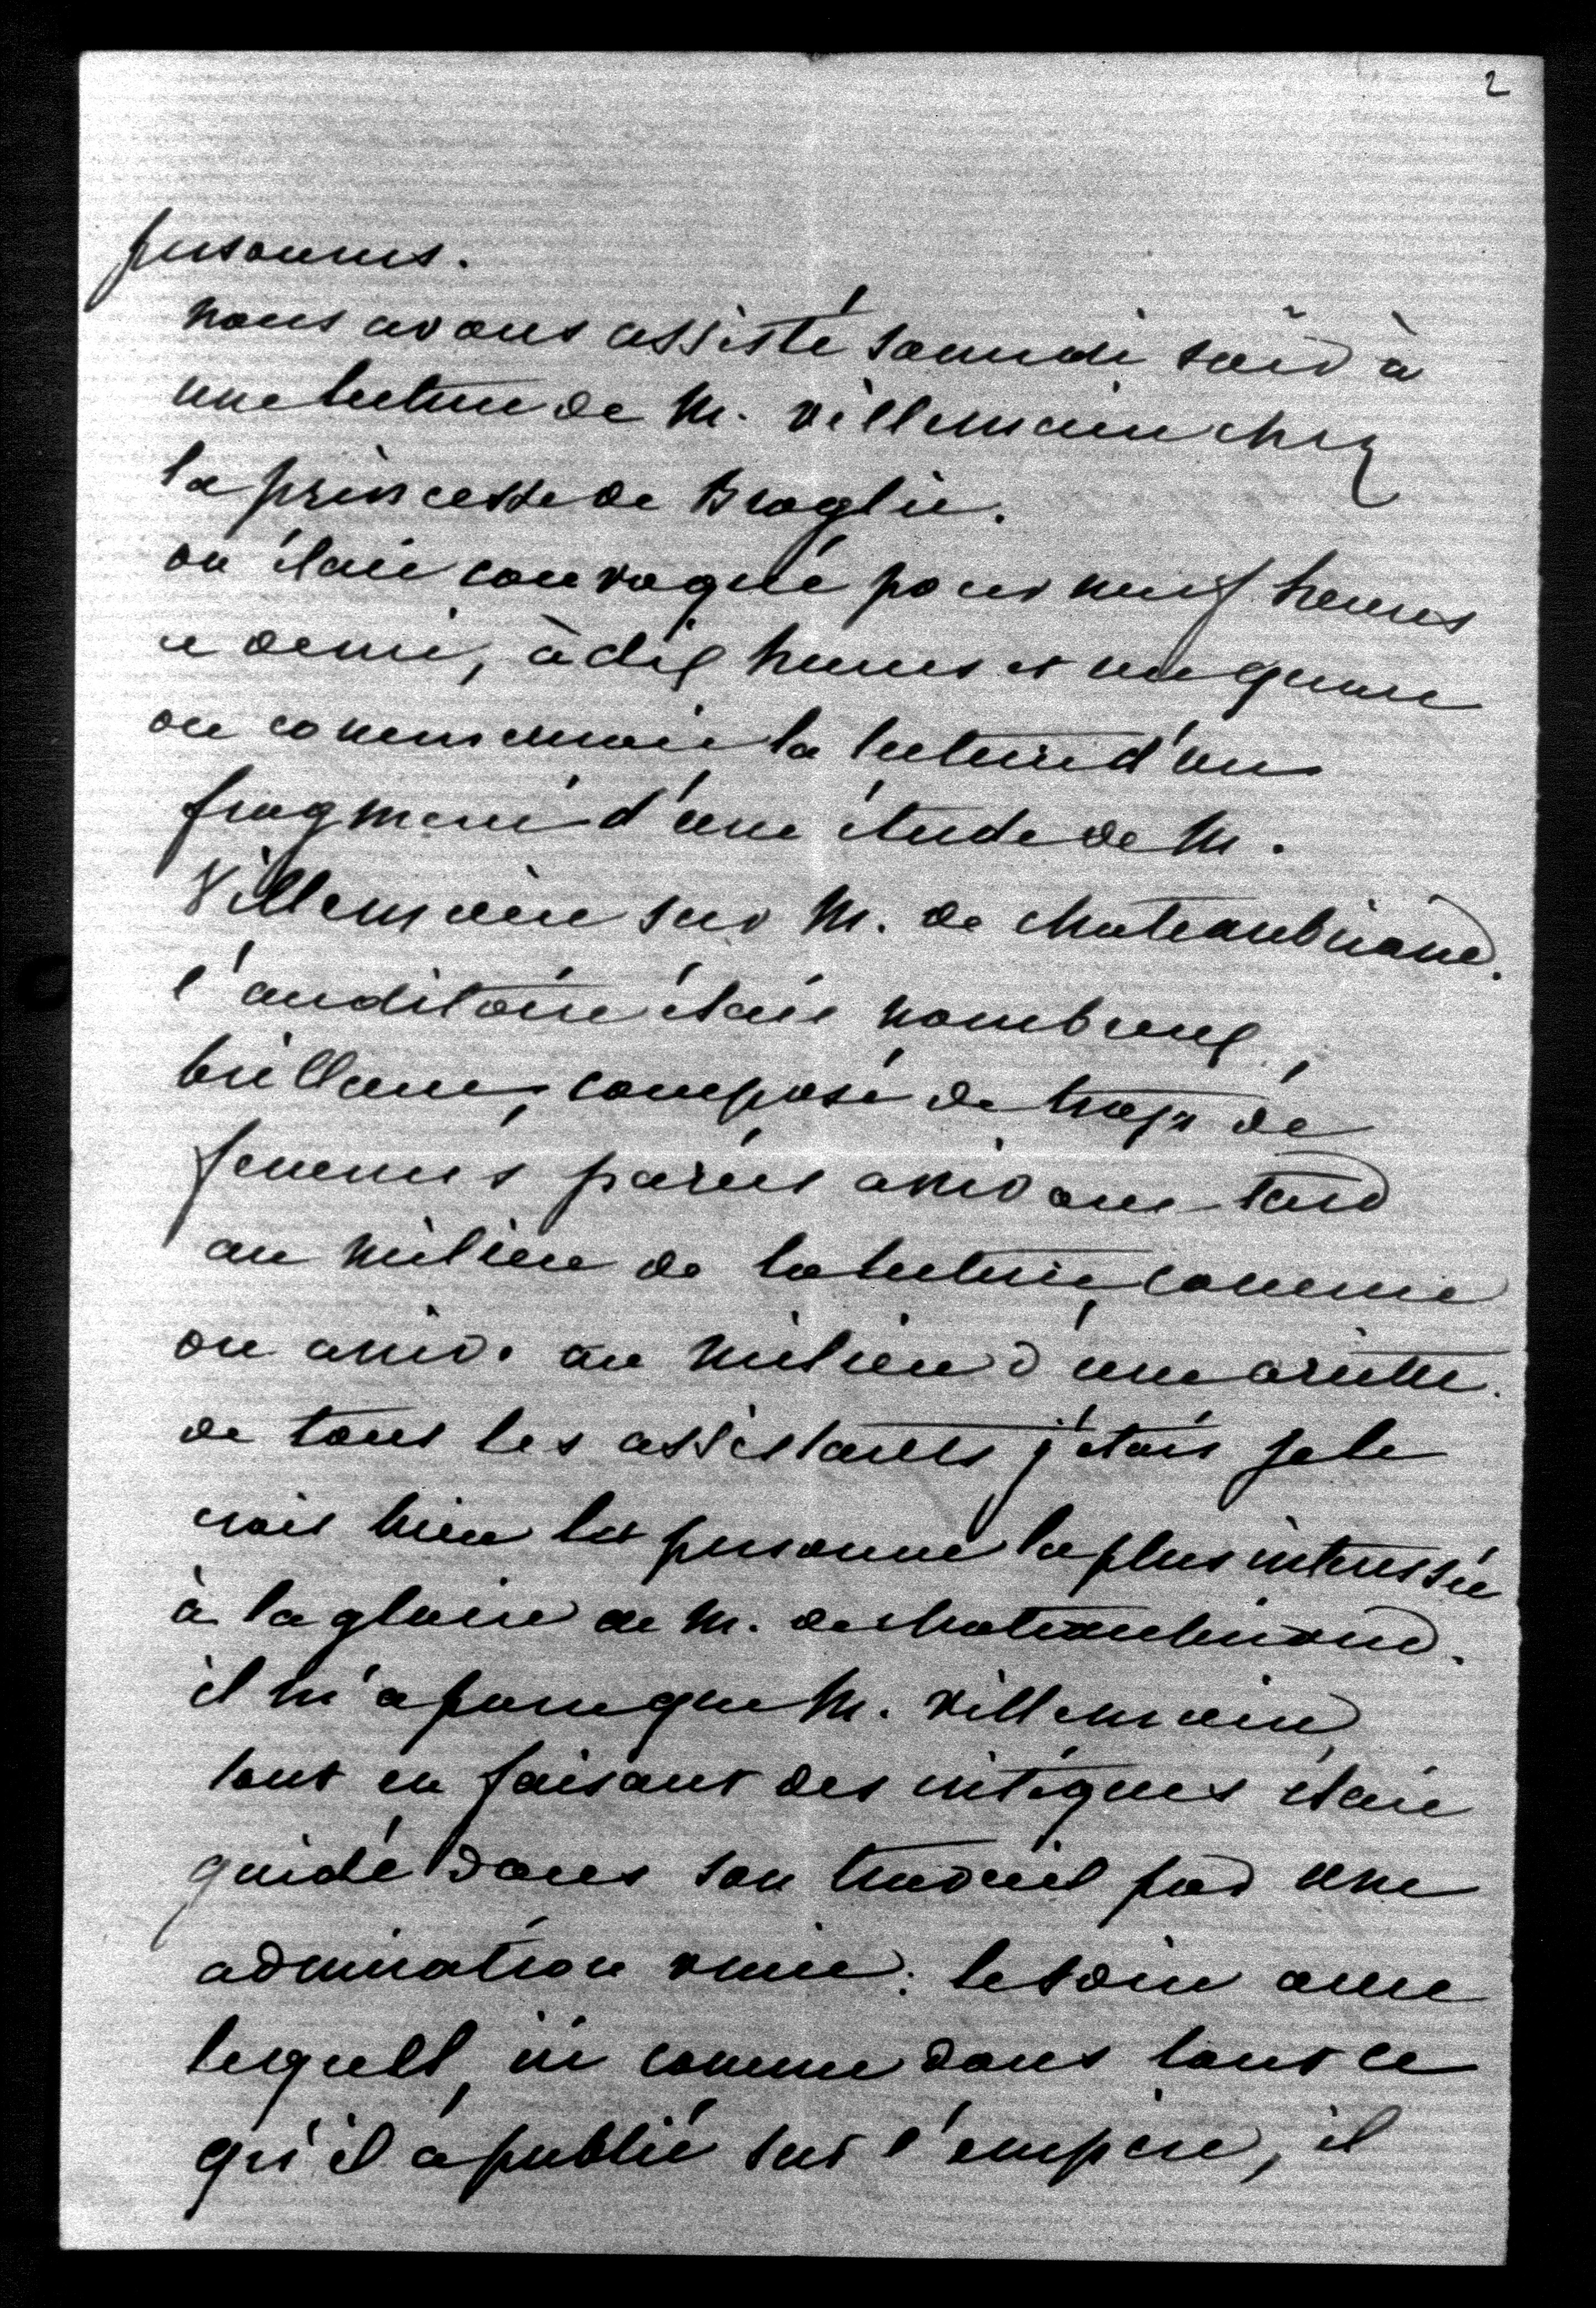 2
personnes.
nous avons assisté samedi soir à
une lecture de M. Villemain chez
la princesse de Broglie.
on était convoqué pour neuf heures
et demie, à dix heures et un quart
on commençait la lecture d'un
fragment d'une étude de M.
Villemain sur M. de Chateaubriand.
l'auditoire était nombreux,
brillant, composé de trop de
femmes parées arrivant tard
au milieu de la lecture, comme
on arrive au milieu d'une ariette.
de tous les assistants j'étais je le
crois bien la personne la plus intéressée
à la gloire de M. de Chateaubriand.
il m'a paru que M. Villemain,
tout en faisant des critiques était
guidé dans son travail par une
admiration vraie: le soin avec
lequel, ici comme dans tout ce
qu'il a publié sur l'empire, il